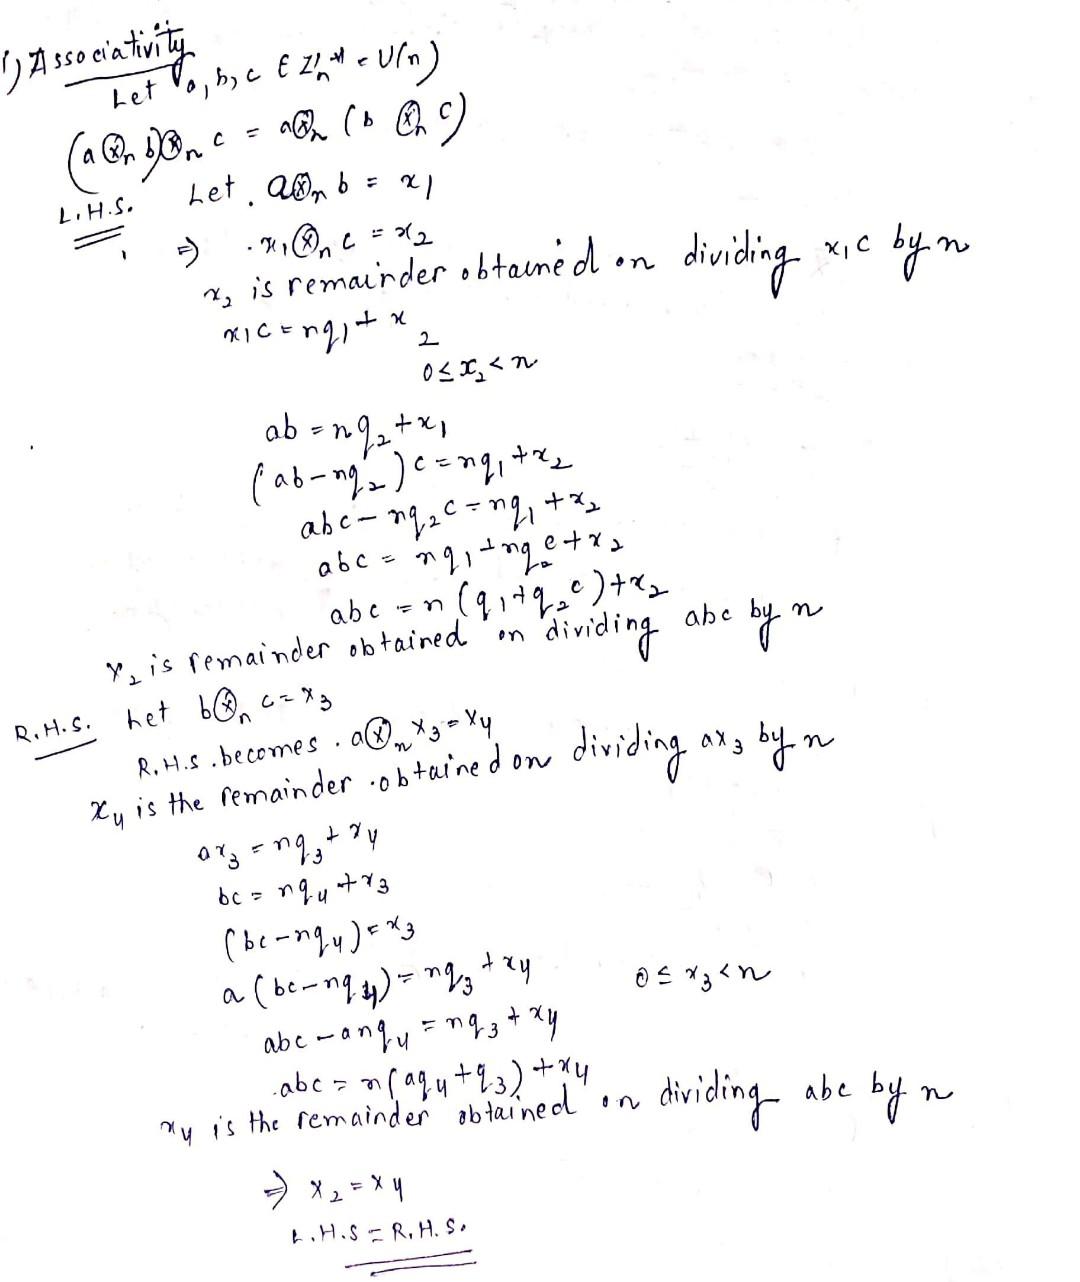 1) Associativity
Let a, b, c ∈ Zn* = U(n)
(a ⊗n b) ⊗n c = a ⊗n (b ⊗n c)
L.H.S. Let. a ⊗n b = x1
⇒ . x1 ⊗n c = x2
x2 is remainder obtained on dividing x1c by n
x1c = nq1 + x2
0 ≤ x2 < n
ab = nq2 + x1
(ab - nq2) c = nq1 + x2
abc - nq2c = nq1 + x2
abc = nq1 + nq2c + x2
abc = n (q1 + q2c) + x2
x2 is remainder obtained on dividing abc by n
R.H.S. Let b ⊗n c = x3
R.H.S. becomes . a ⊗n x3 = x4
x4 is the remainder obtained on dividing ax3 by n
ax3 = nq3 + x4
bc = nq4 + x3
(bc - nq4) = x3
a (bc - nq4) = nq3 + x4 0 ≤ x3 < n
abc - anq4 = nq3 + x4
abc = n (aq4 + q3) + x4
x4 is the remainder obtained on dividing abc by n
⇒ x2 = x4
L.H.S = R.H.S.